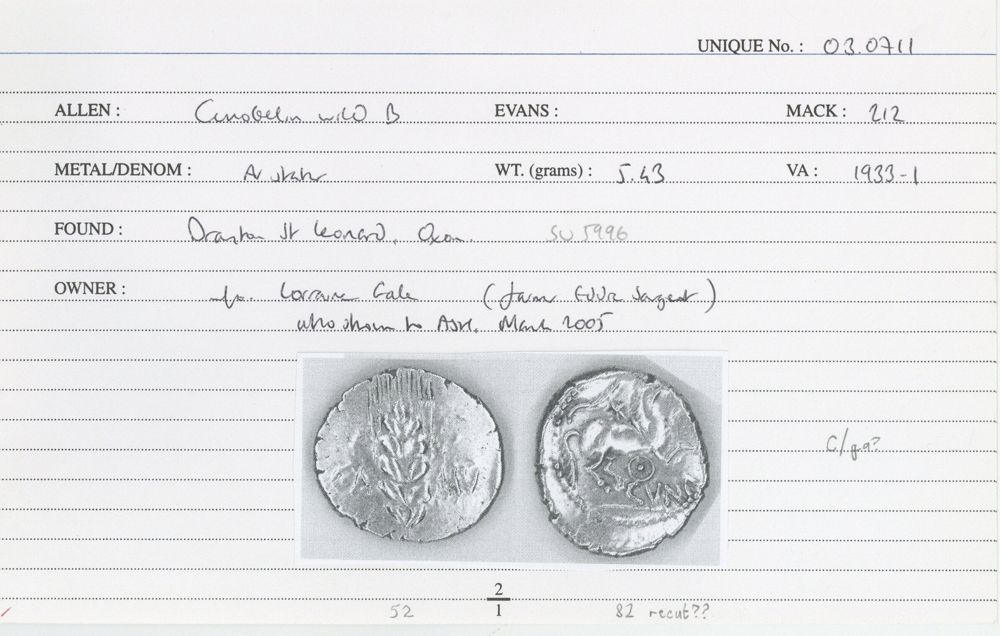 UNIQUE No. : 03.0711
ALLEN : Cunobelin wild B EVANS : MACK : 212
METAL/DENOM : AV stater WT. (grams) : 5.43 VA : 1933-1
FOUND : Drayton St Leonard, Oxon. SU 5996
OWNER : Lorraine Gale (from Eddie Sargent)
also shown to Ash. March 2005
CA M
CVNO
C/ga?
2
52 1 82 recut??